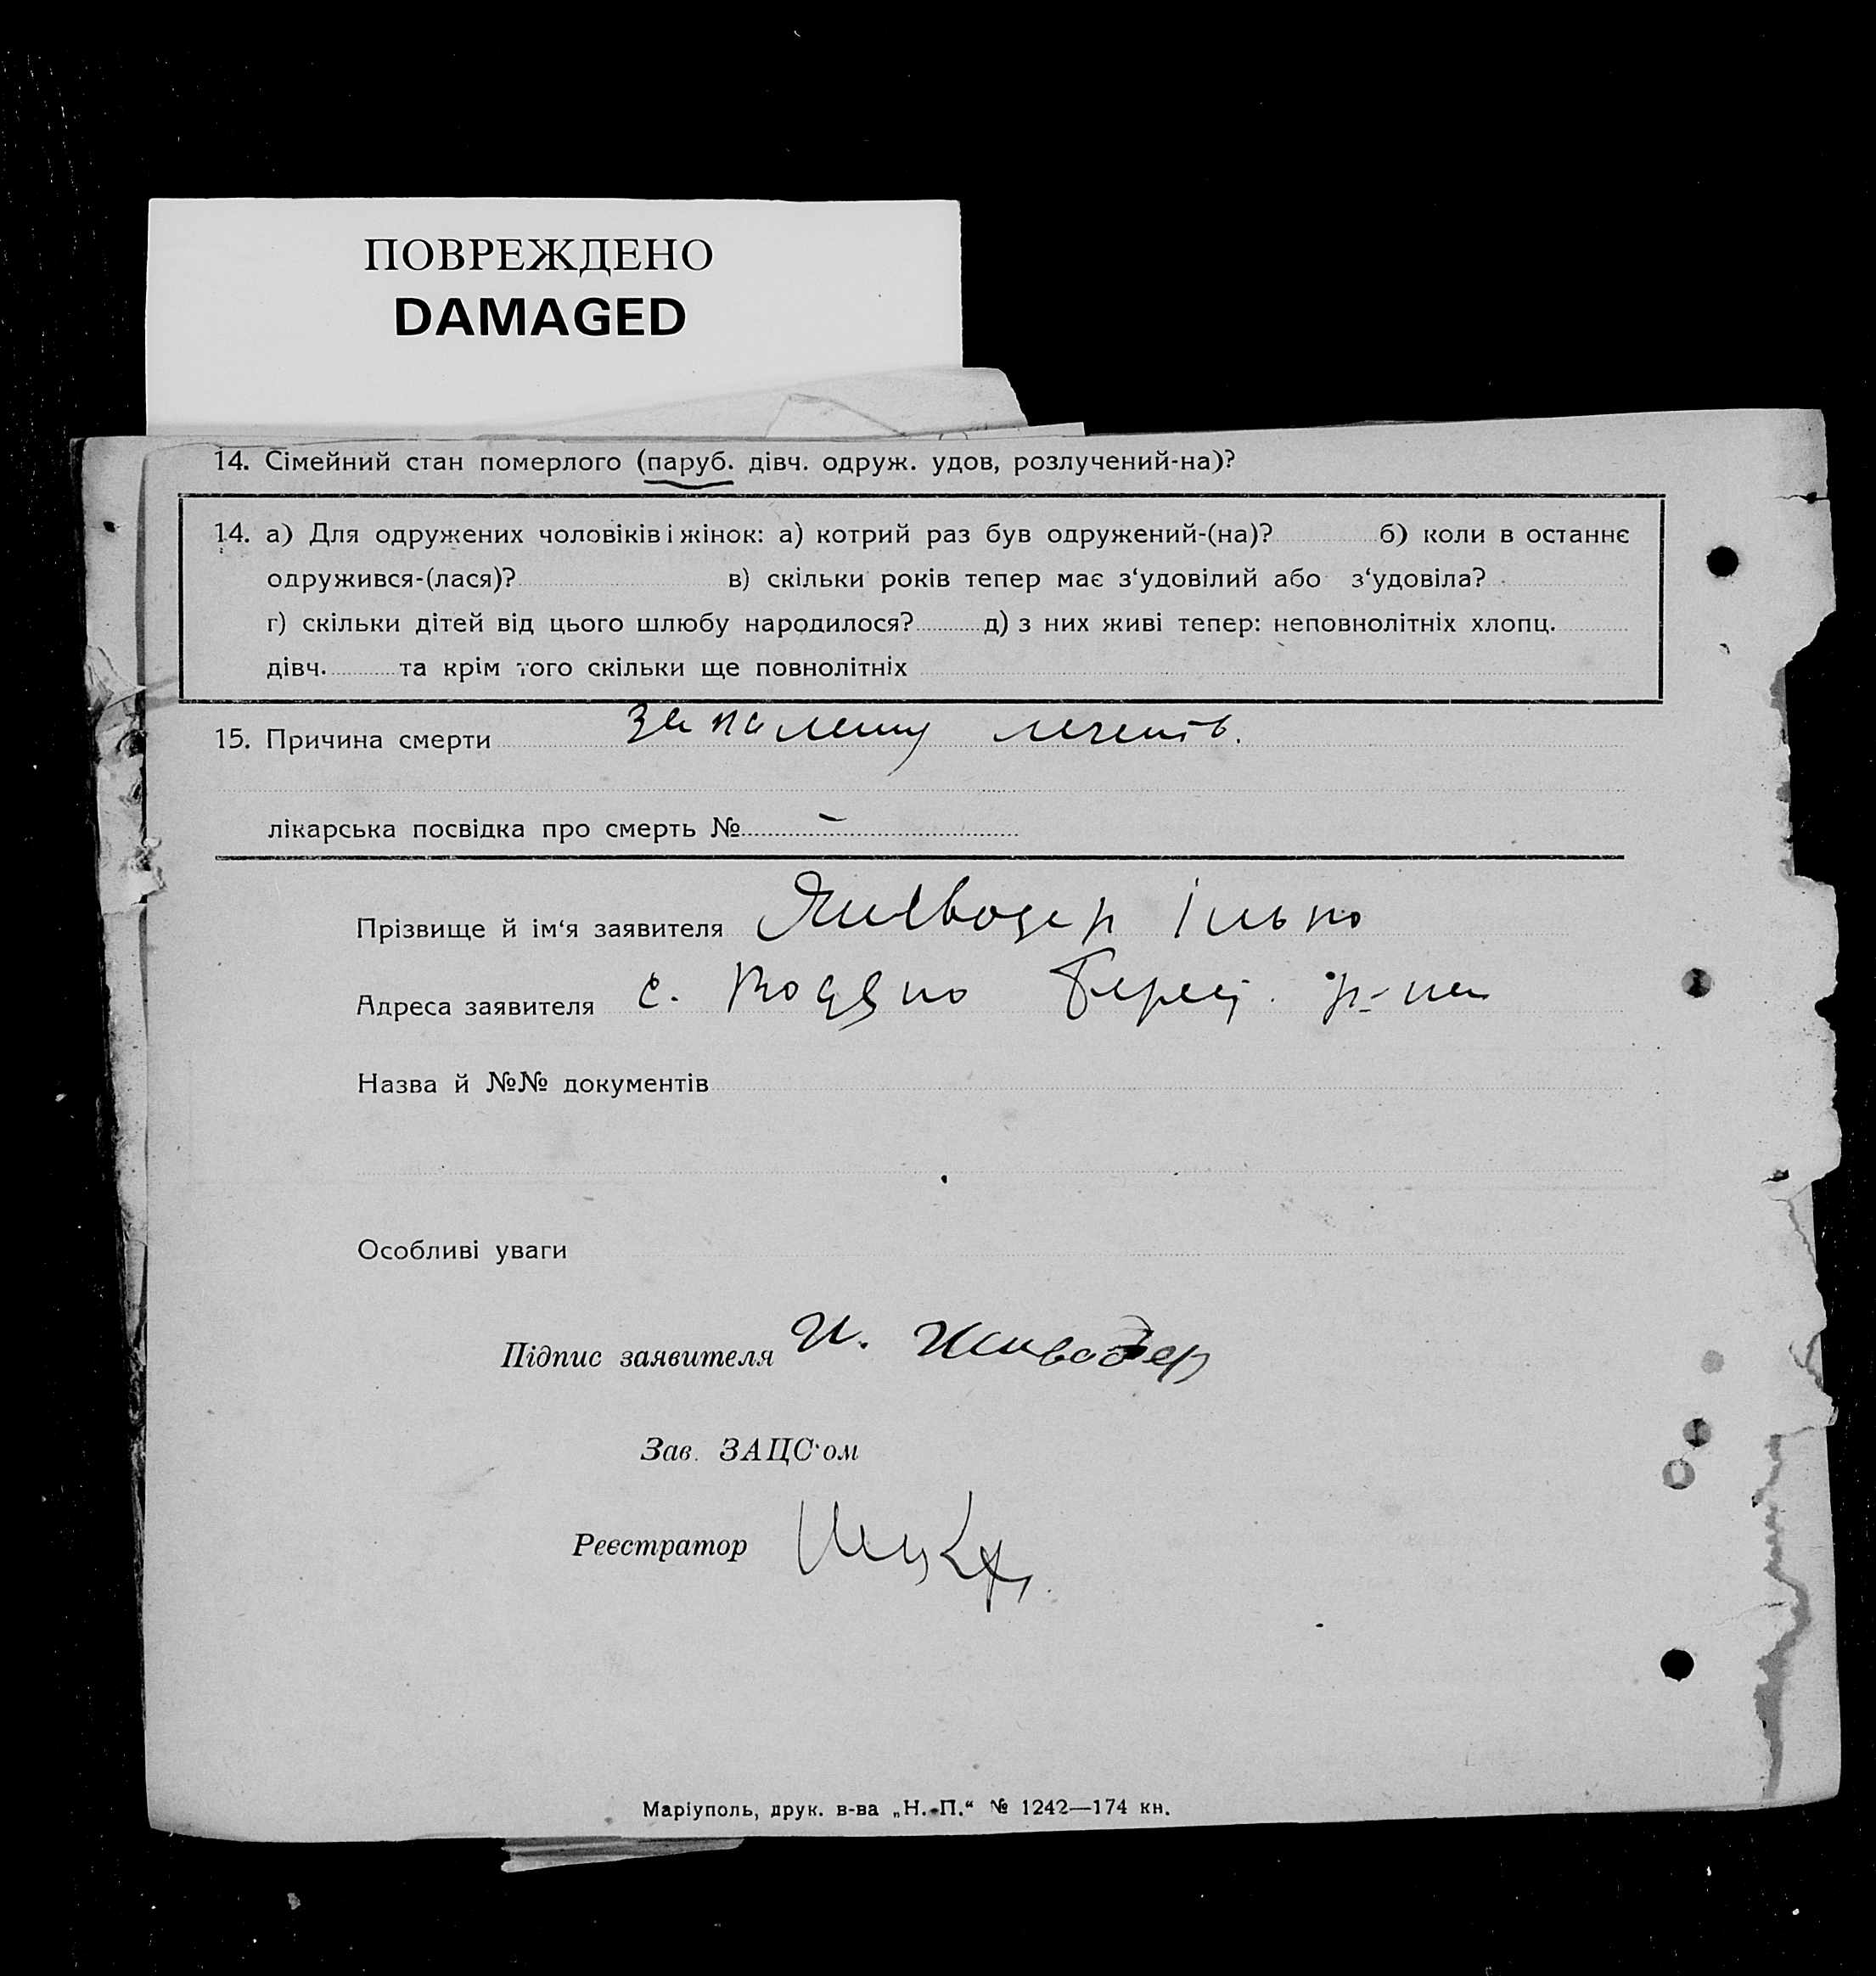 ПОВРЕЖДЕНО
DAMAGED
14. Сімейний стан померлого (паруб. дівч. одруж. удов, розлучений-на)?
14. а) Для одружених чоловіків і жінок: а) котрий раз був одружений-(на)? б) коли в останнє
одружився-(лася)? в) скільки років тепер має з‘удовілий або з‘удовіла?
г) скільки дітей від цього шлюбу народилося? д) з них живі тепер: неповнолітніх хлопц.
дівч. та крім того скільки ще повнолітніх
15. Причина смерти запалення легенів.
лікарська посвідка про смерть № –
Прізвище й ім‘я заявителя Ілько
Адреса заявителя с. р-на
Назва й №№ документів
Особливі уваги
Підпис заявителя И. Живодер
Зав. ЗАЦС‘ом
Реєстратор
Маріуполь, друк. в-ва „Н.-П.“ № 1242—174 кн.